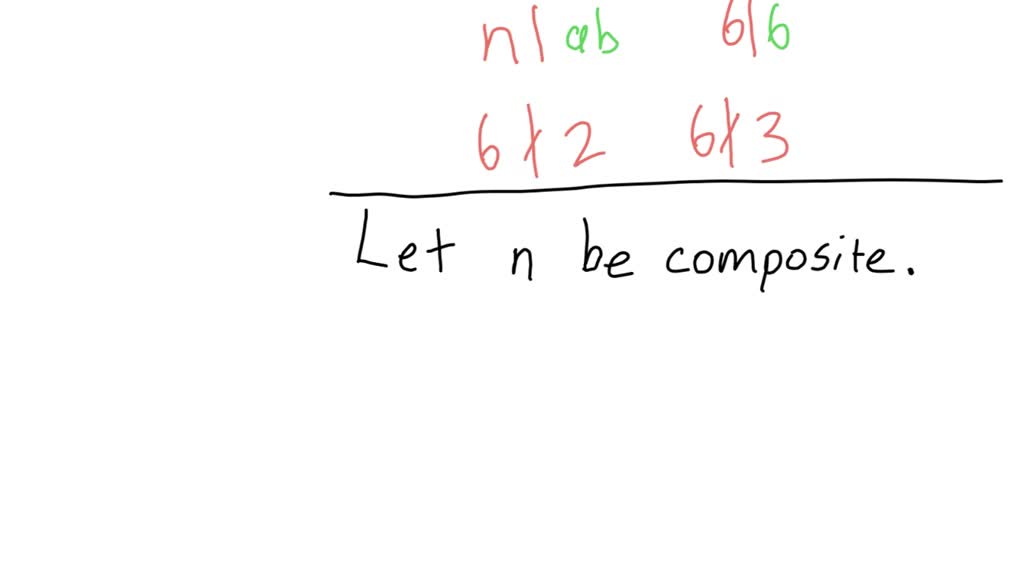 n | ab 6 | 6
6 ∤ 2 6 ∤ 3
Let n be composite.